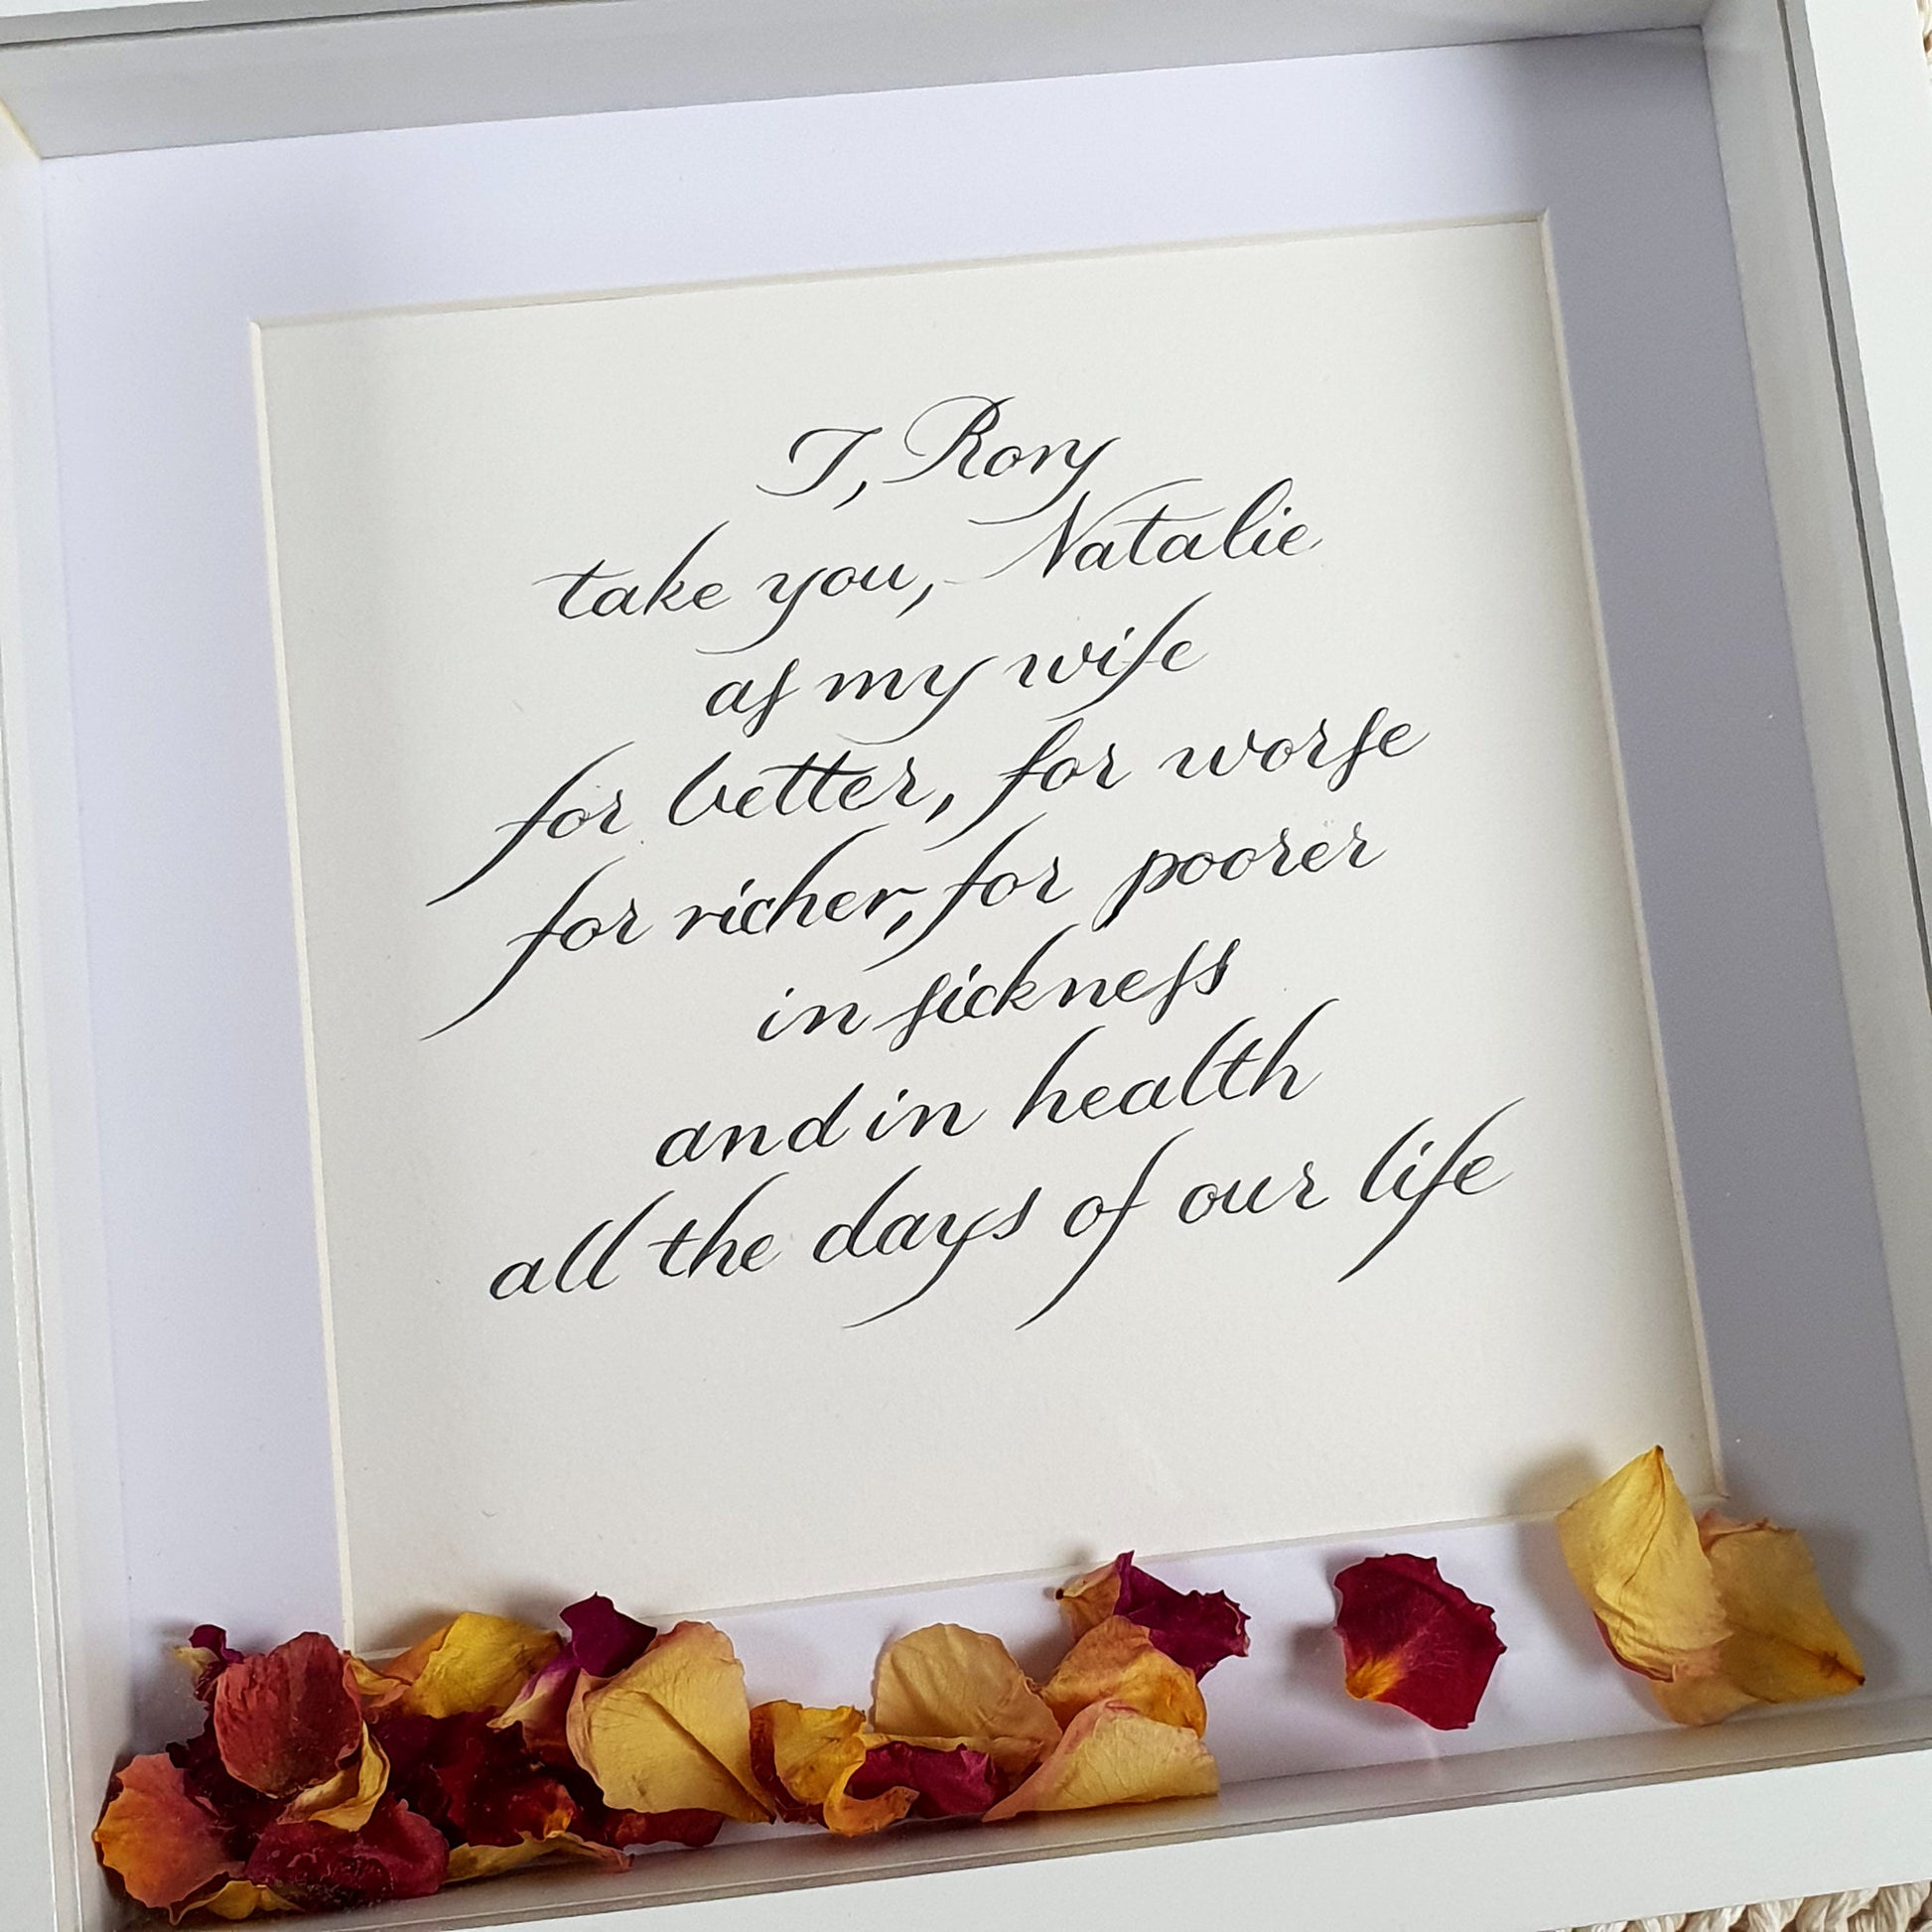 I, Rory
take you, Natalie
as my wife
for better, for worse
for richer, for poorer
in sickness
and in health
all the days of our life